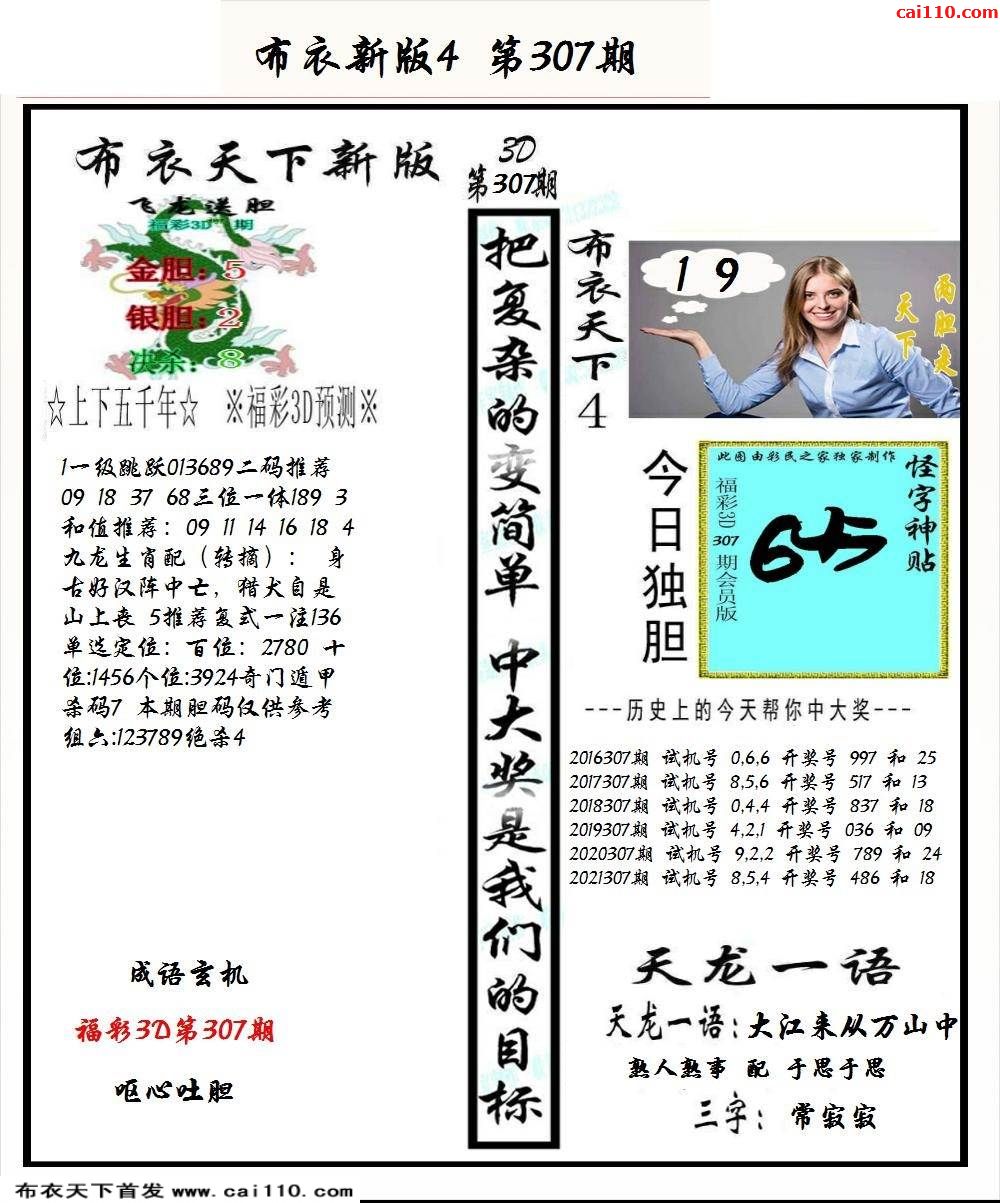 cai110.com
布衣新版4 第307期
布衣天下新版
飞龙送胆
福彩3D 期
金胆：5
银胆：2
决杀：8
☆上下五千年☆ ※福彩3D预测※
1一级跳跃013689二码推荐
09 18 37 68三位一体189 3
和值推荐：09 11 14 16 18 4
九龙生肖配（转摘）： 身
古好汉阵中亡，猎犬自是
山上丧 5推荐复式一注136
单选定位：百位：2780 十
位:1456个位:3924奇门遁甲
杀码7 本期胆码仅供参考
组六:123789绝杀4
成语玄机
福彩3D第307期
呕心吐胆
3D
第307期
把复杂的变简单 中大奖是我们的目标
布衣天下4
1 9
两胆走
天下
今日独胆
此图由彩民之家独家制作
怪字神贴
福彩3D 307 期会员版
65
---历史上的今天帮你中大奖---
2016307期 试机号 0,6,6 开奖号 997 和 25
2017307期 试机号 8,5,6 开奖号 517 和 13
2018307期 试机号 0,4,4 开奖号 837 和 18
2019307期 试机号 4,2,1 开奖号 036 和 09
2020307期 试机号 9,2,2 开奖号 789 和 24
2021307期 试机号 8,5,4 开奖号 486 和 18
天龙一语
天龙一语:大江来从万山中
熟人熟事 配 于思于思
三字：常寂寂
布衣天下首发 www.cai110.com